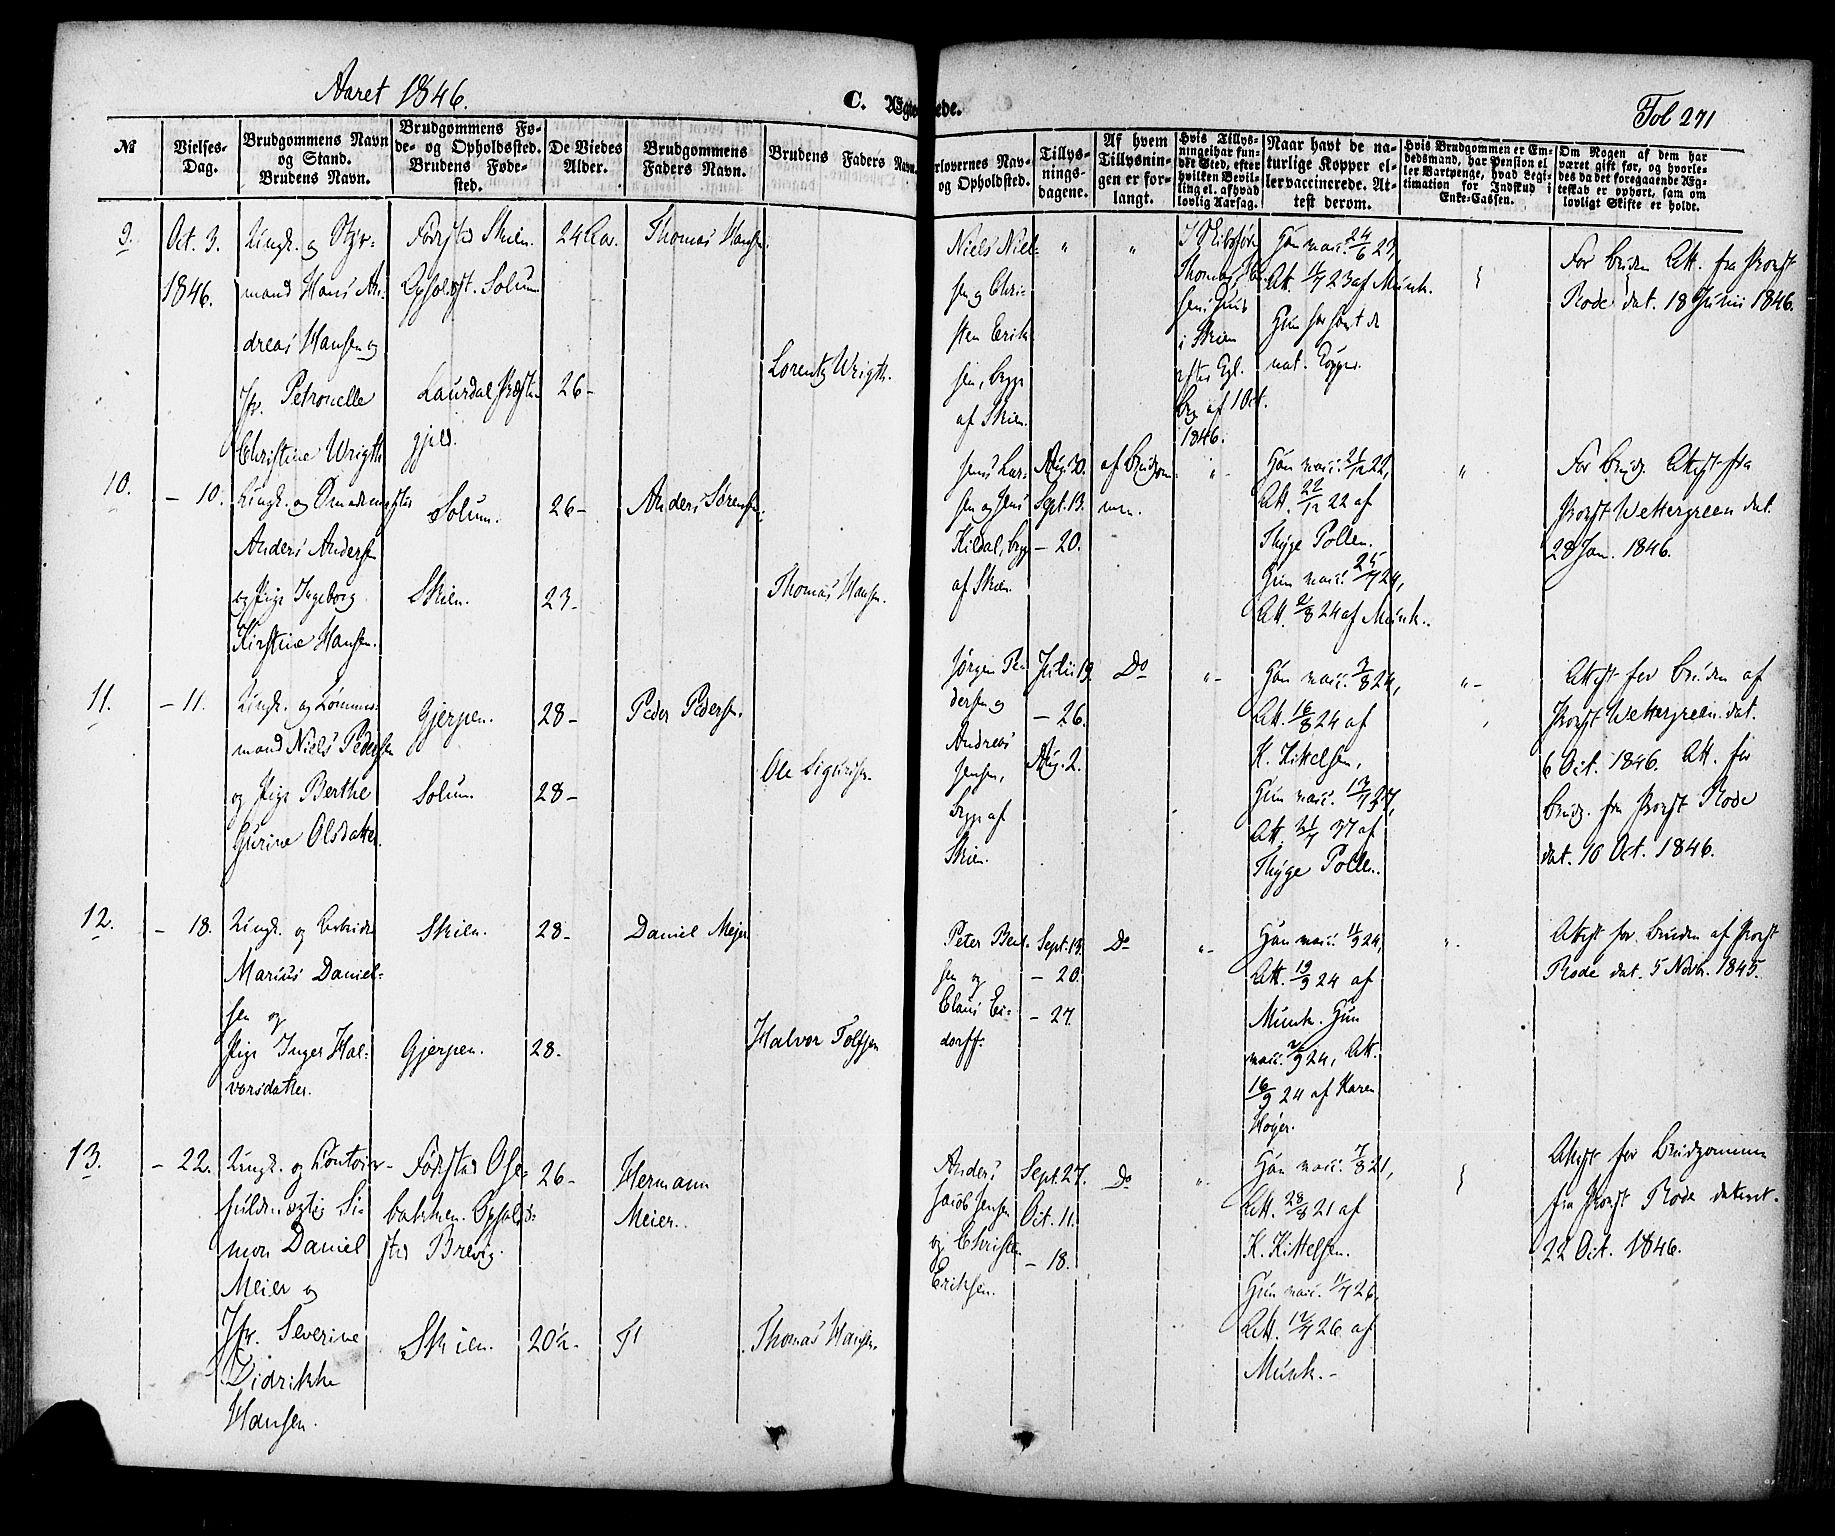 Aaret 1846.
C. Ægteviede.
Fol 271
№
Vielses-
Dag.
Brudgommens Navn
og Stand.
Brudens Navn.
Brudgommens Fø-
de- og Opholdssted.
Brudens Føde-
sted.
De Viedes
Alder.
Brudgommens
Faders Navn.
Brudens Faders Navn.
orlovernes Nav-
og Opholdsted.
Tillys-
nings-
dagene.
Af hvem
Tillysnin-
gen er for-
langt.
Hvis Tillys-
ning ei har fun-
det Sted, efter
hvilken Bevil-
ling el. afhvad
lovlig Aarsag.
Naar havt de na-
turlige Kopper el-
ler vaccinerede. At-
test derom.
Hvis Brudgommen er Em-
bedsmand, har Pension el-
ler Vartpenge, hvad Legi-
timation for Indskud i
Enke-Cassen.
Om Nogen af dem har
været gift før, og hvorle-
des da det foregaaende Æg-
teskab er ophørt, sam om
lovligt Skifte er holdt.
9.
Oct. 3.
1846.
Ungk. og Styr-
mand Hans An-
dreas Hansen og
Jfr. Petronelle
Christine Wrigth
Fødested Skien.
Opholdst. Solum
Laurdal Præste-
gjeld.
24 Aar.
26 -
Thomas Hansen.
Lorentz Wrigth.
Niels Niel-
sen og Chri-
sten Erik
sen, begge
af Skien.
"
"
Thomas Han-
sens Huus
i Skien
efter Kgl.
Bev. af 1 Oct.
1846.
Han vacc. 24/6 23,
Att. 11/7 23 af Munk.
Hun har havt de
nat. Kopper.
For Bruden Att. fra Provst
Rode dat. 18 Junii 1846.
10.
- 10.
Ungk. og
Anders Andersen
og Pige Ingeborg
Kirstine Hansen.
Solum.
Skien.
26 -
23 -
Anders Sørensen.
Thomas Hansen.
Jens Lar-
sen og Jens
Kildal, begge
af Skien.
Aug. 30.
Sept. 13.
- 20.
af Brudgom-
men.
"
Han vacc. 21/12 22,
Att. 22/12 22 af
Thyge Pollen.
Hun vacc. 25/7 24,
Att. 2/8 24 af Munk.
"
For Brudg. Attest fra
Provst Wettergreen dat.
28 Jan. 1846.
11.
- 11.
Ungk. og Tømmer-
mand Niels Pedersen
og Pige Berthe
Gurine Olsdatter.
Gjerpen.
Solum.
28 -
28 -
Peder Pedersen.
Ole Sigurdsen.
Jørgen Pe-
dersen og
Andreas
Jensen,
begge af
Skien.
Julii 19.
- 26.
Aug. 2.
Do
"
Han vacc. 9/8 24,
Att. 16/8 24 af
K. Kittelsen,
Hun vacc. 13/7 37,
Att. 21/7 37 af
Thyge Pollen.
"
Attest for Bruden af
Provst Wettergreen dat.
6 Oct. 1846. Att. for
Brudg. fra Provst Rode
dat. 10 Oct. 1846.
12.
- 18.
Ungk. og Arbeider
Marius Daniel-
sen og
Pige Inger Hal-
vorsdatter.
Skien.
Gjerpen.
28 -
28.
Daniel Mejer
Halvor Tolfsen
Peter Bent-
sen og
Claus Ei-
dorff.
Sept. 13.
- 20.
- 27.
Do
"
Han vacc. 11/9 24,
Att. 19/9 24 af
Munk. Hun
vacc. 9/9 24, Att.
16/9 24 af Karen
Høyer.
"
Attest for Bruden af Provst
Rode dat. 5 Novb. 1845.
13.
- 22.
Ungk. og Contoir-
fuldmægtig Si-
mon Daniel
Meier og
Jfr. Severine
Didrikke
Hansen.
Fødested Ose-
bakken. Ophold-
sted Brevig.
Skien.
26 -
20½ -
Hermann
Meier.
Thomas Hansen.
Anders
Jacob Jensen
og Christen
Eriksen.
Sept. 27.
Oct. 11.
- 18.
Do
"
Han vacc. 7/8 21,
Att. 28/8 21 af
K. Kittelsen.
Hun vacc. 11/7 26,
Att. 17/7 26 af
Munk. -
Attest for Brudgommen
fra Provst Rode dateret
22 Oct. 1846.